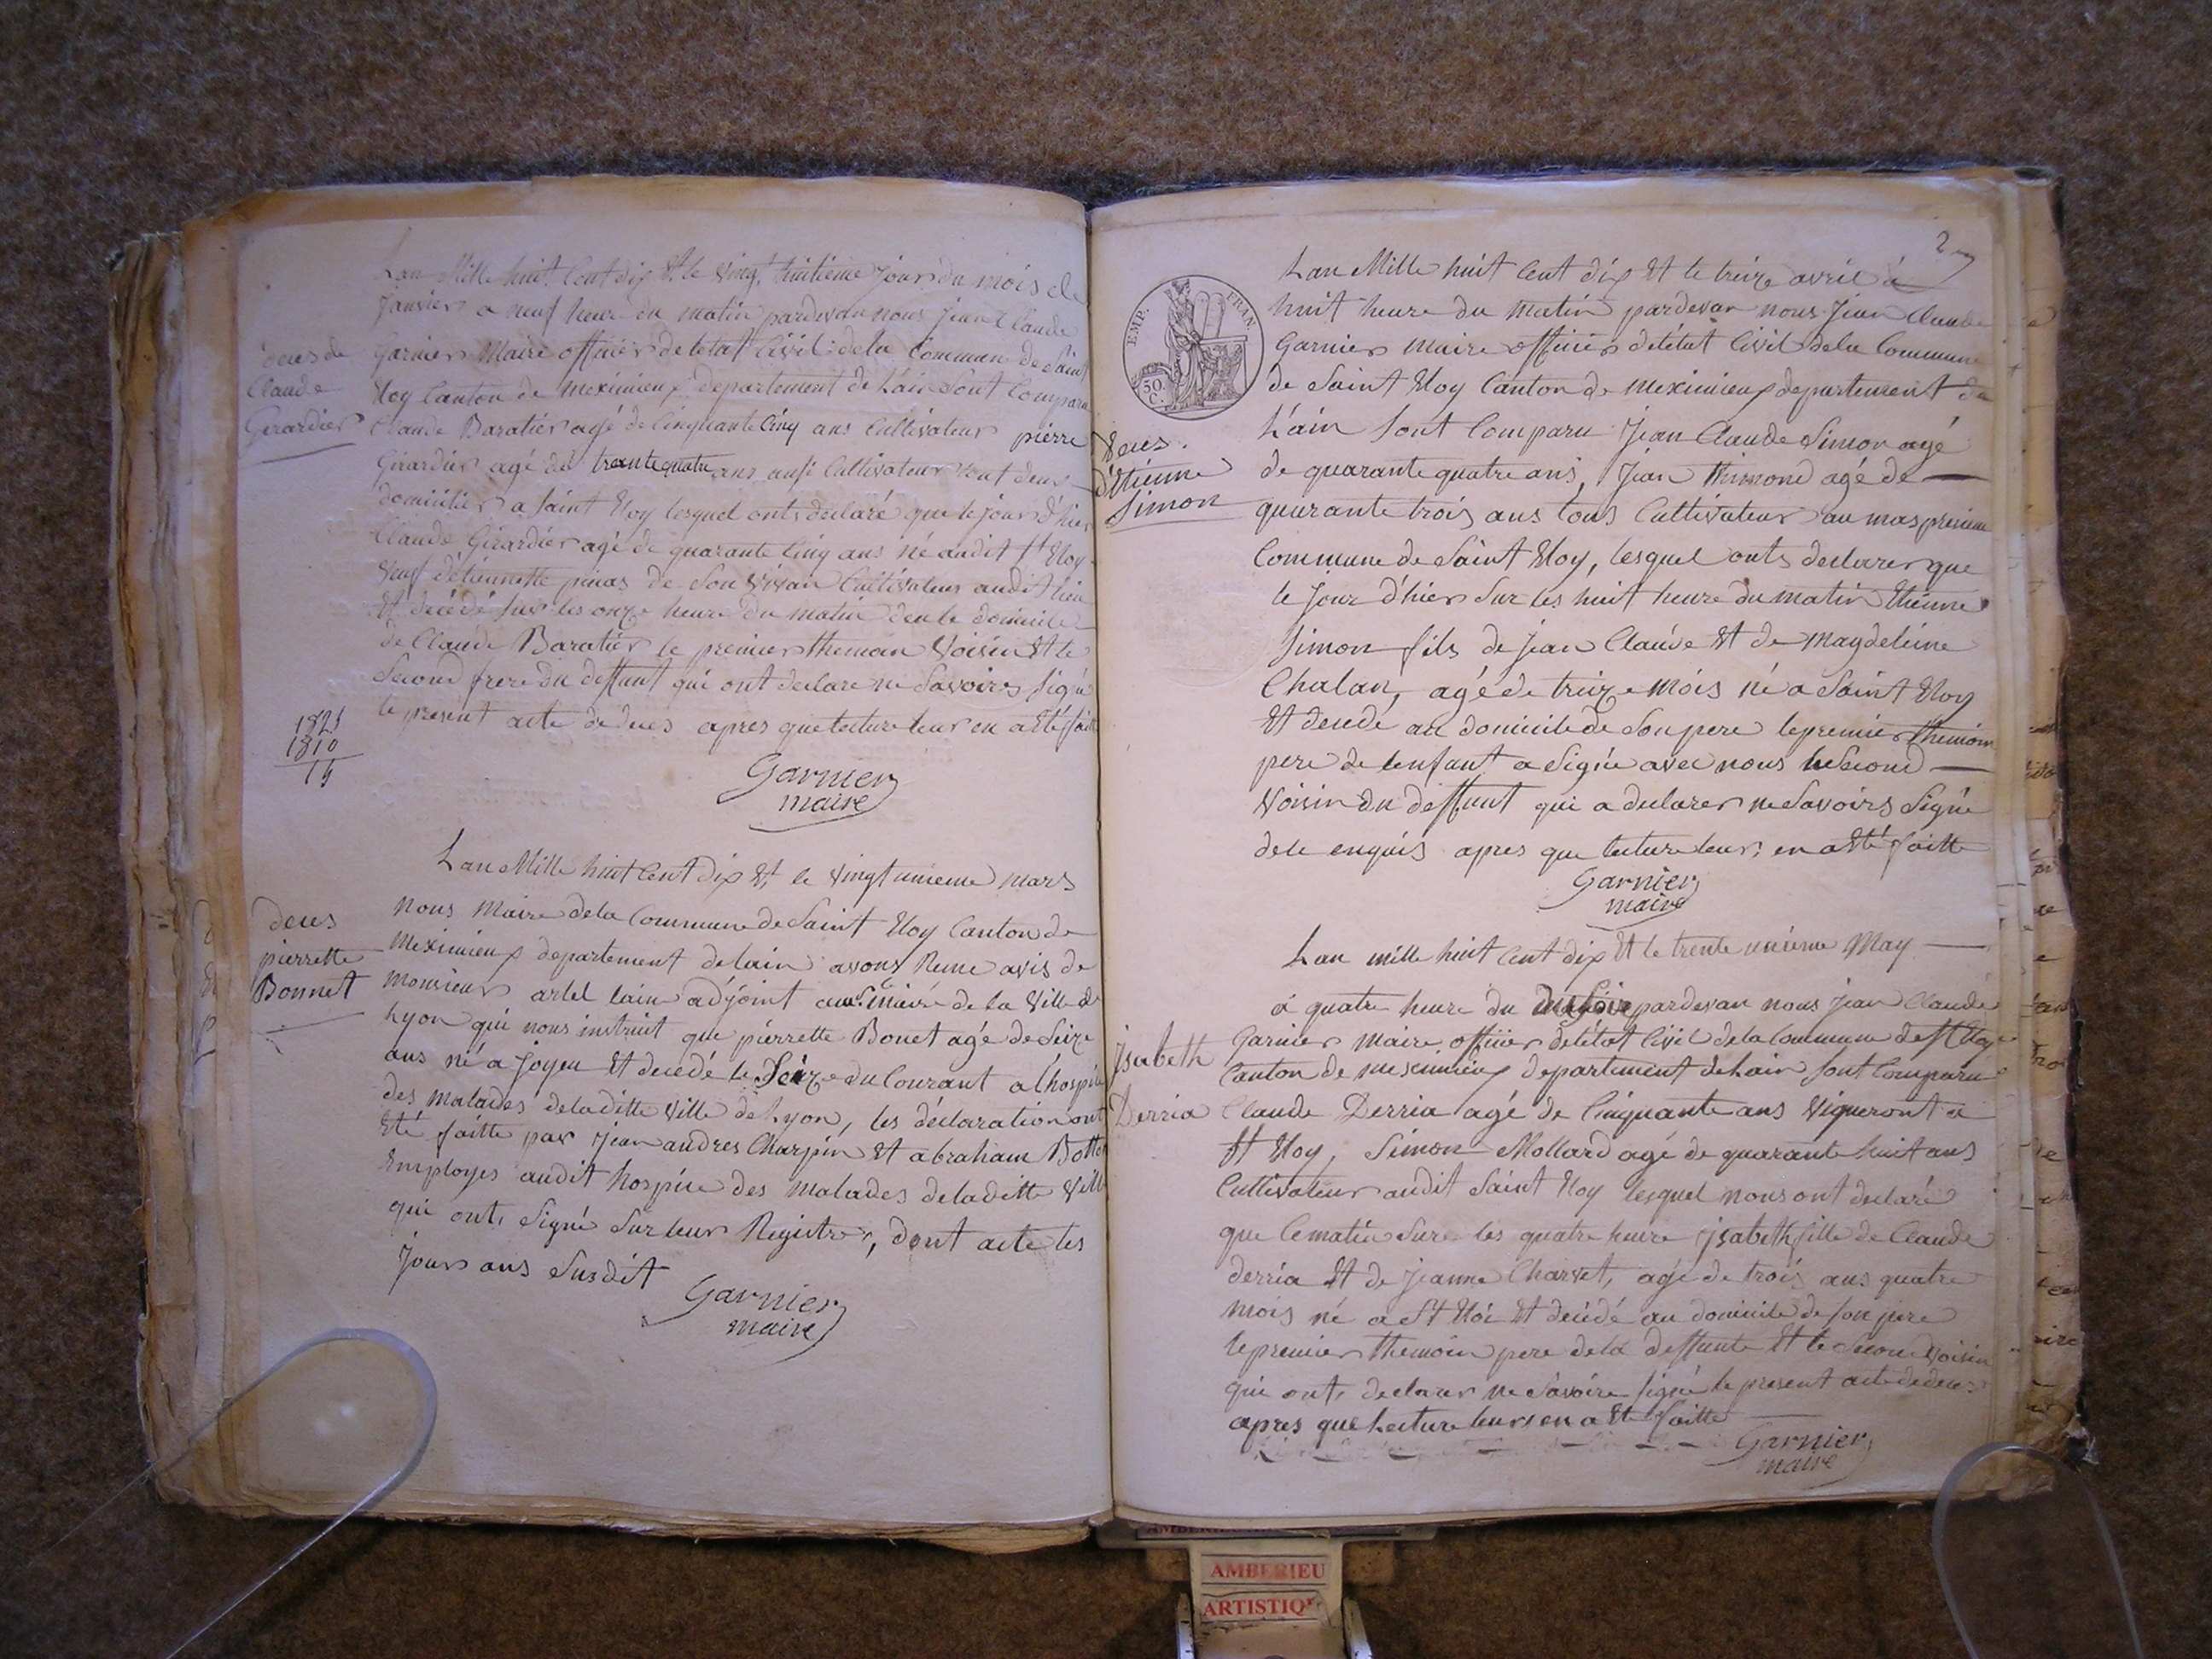 Lan Mille huit Cent dix Et le vingt huitieme jour du mois de
Janvier a neuf heure du matin pardevan nous jean Claude
Garnier Maire officier de letat Civil dela Commune de Saint
Eloy Canton de Meximieux departement de Lain Sont Comparu
Claude Baratier agé de Cinquante Cinq ans Cultivateur pierre
Girardier agé de trante quatre ans ausi Cultivateur tout deux
domicilier a Saint Eloy lesquel onts declaré que le jour d'hier
Claude Girardier agé de quarante Cinq ans né audit St Eloy
veuf détiennette de Son vivan Cultivateur audit lieu
Et décédé sur les onze heure du matin den le domicile
de Claude Baratier le premier themoin Voisin Et le
Second frere du deffunt qui ont declare ne Savoires Signé
le present acte de deces apres que lecture leur en a Eté faitte
deces de
Claude
Girardier
1810
Garnier
maire
Lan Mille huit Cent dix Et le vingt unieme mars
nous Maire dela Commune de Saint Eloy Canton de
Meximieux departement de lain avons Reme avis de
Monsieur artel laine adjoint de la Ville de
Lyon qui nous instruit que pierrette Bonet agé de Seize
ans né a joyeu Et decedé le Seize du Courant a lhospice
des malades deladitte Ville de Lyon, les déclaration ont
Eté faitte par jean andres Charpin Et abraham Botton
Employes audit hospice des Malades deladitte Ville
qui onts Signé Sur leur Registre, dont acte les
jours ans Susdit
deces
pierrette
Bonnet
Garnier
maire
2
EMP. FRAN
50.
C.
Lan Mille huit Cent dix Et le treize avril à
huit heure du matin pardevan nous Jean Claude
Garnier maire officier detétat Civil dela Commune
de Saint Eloy Canton de Meximieux departement de
L'ain Sont Comparu Jean Claude Simon agé
de quarante quatre ans, Jean Thimond agé de
quarante trois ans tous Cultivateur au mas
Commune de Saint Eloy, lesquel onts declarer que
le Jour d'hier Sur les huit heure du matin Etienne
Simon fils de jean Claude Et de Magdeleine
Chalan, agé de treize Mois né a Saint Eloy
Et decede au domicile de Son pere le premier themoin
pere de lenfant a Signé avec nous le Second
Voisin du deffunt qui a declarer ne Savoirs Signé
dele enquis apres que lecture leur, en a Eté faitte
deces
d'Etienne
Simon
Garnier
maire
Lan mille huit Cent dix Et le trente unieme May
à quatre heure du Soire pardevan nous jean Claude
Garnier Maire officier detétat Civil dela Commune de St Eloy
Canton de meximieux departement de Lain Sont Comparu
Claude Derria agé de Cinquante ans Vigneront a
St Eloy, Simon Mollard agé de quarante huit ans
Cultivateur audit Saint Eloy lesquel nous ont declaré
que Cematin Sure les quatre heure jsabeth fille de Claude
derria Et de jeanne Charvet, agé de trois ans quatre
mois né a St Eloi Et décédé au domicile de Son pere
le premier themoin pere dela deffunte Et le Second Voisin
qui onts declarer ne Savoire Signé le present acte de deces
apres que lecture leurs en a Eté faitte
jsabeth
Derria
Garnier
maire
AMBERIEU
ARTISTIQ